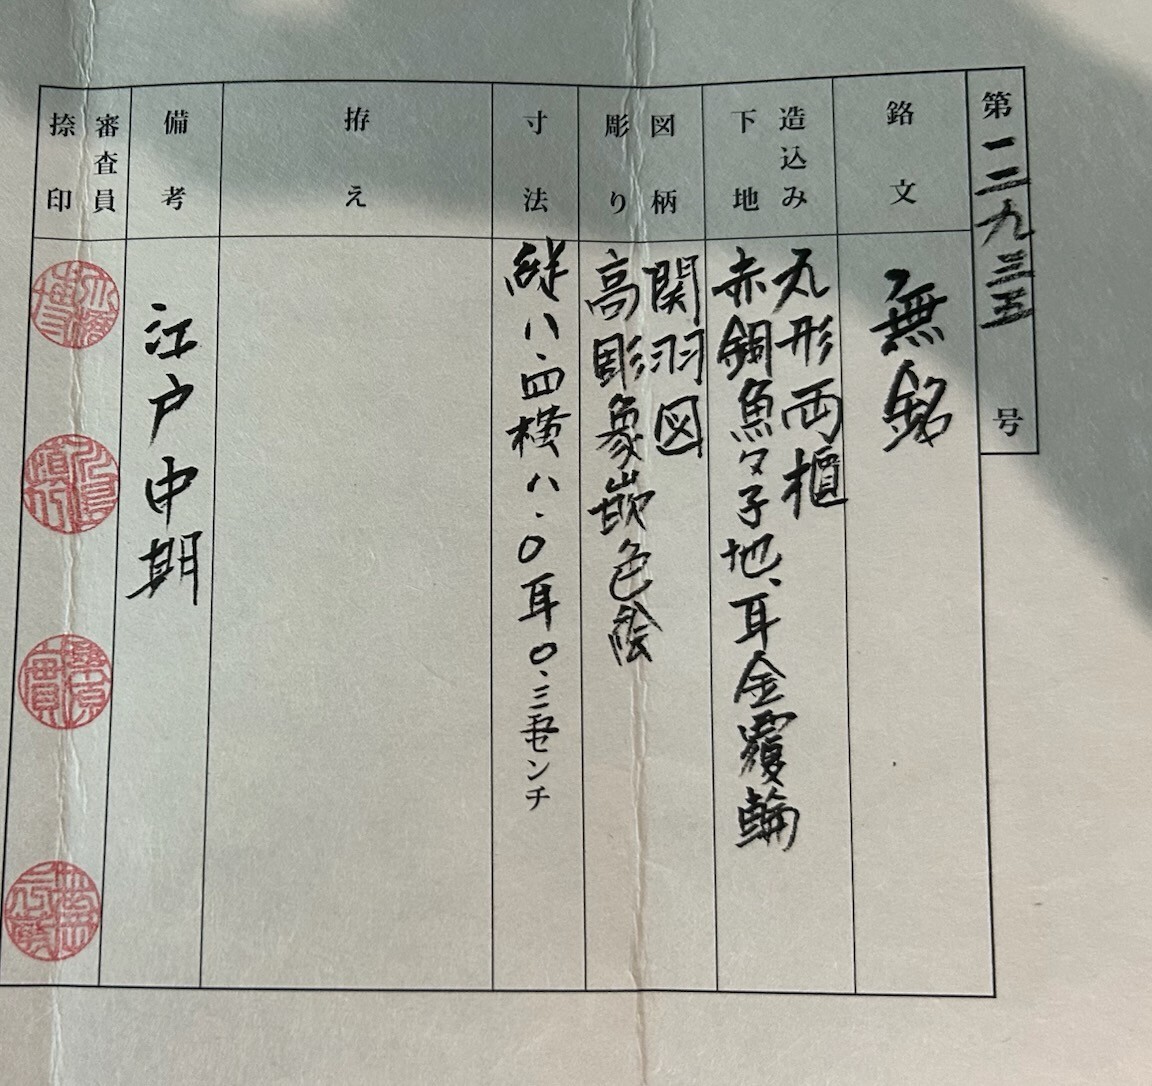 第一二九三五号
銘文
無銘
造込み
下地
丸形両櫃
赤銅魚々子地、耳金覆輪
図柄
彫り
関羽図
高彫象嵌色絵
寸法
縦八.四横八.〇耳〇.三五センチ
拵え
備考
江戸中期
審査員
捺印